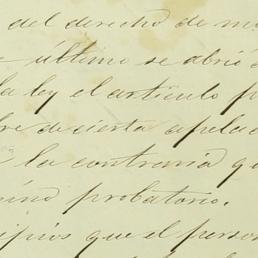 del derecho de
último se abrió
la ley el artículo
de cierta apela
la contraria
probatorio.
que el person